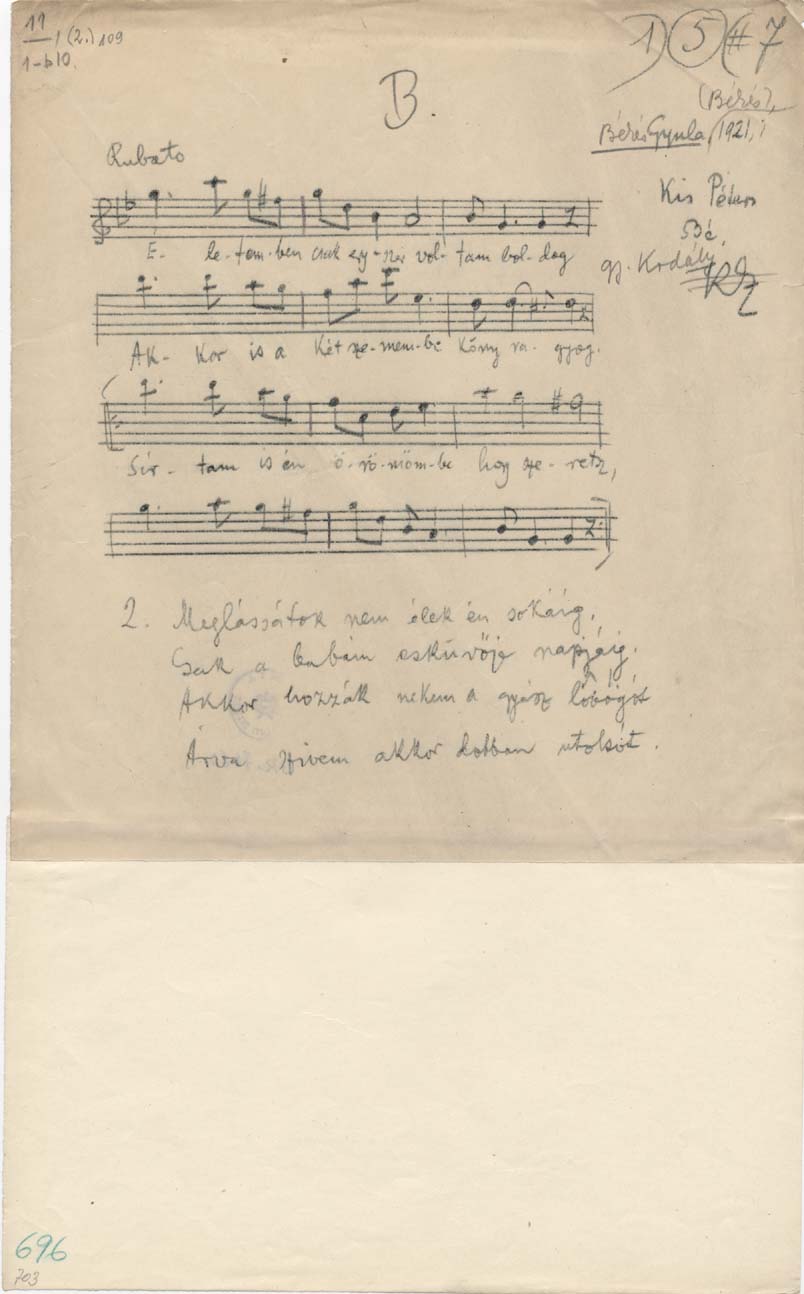 11 / 1-b10. / (2.) 109
1) 5 (# 7
B.
(Bérés),
Bérés Gyula, 1921, i
Rubato
Kis Péter
Bé.
gy. Kodály
KZ
É- le-tem-ben csak egy-szer vol- tam bol-dog
Ak- kor is a két sze-mem-be köny ra- gyog.
Sír- tam is én ö-rö-möm-be hogy sze- retsz,
2. Meglássátok nem élek én sokáig,
Csak a babám esküvője napjáig.
Akkor hozzák nekem a gyász lobogót
Árva szivem akkor dobban utolsót.
696
703